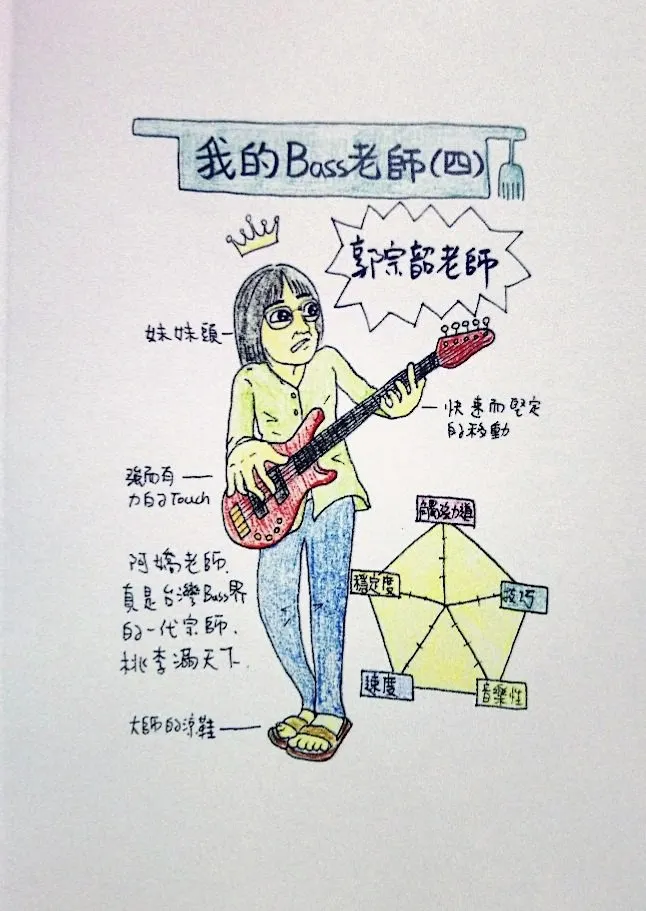 我的Bass老師(四)
郭宗韶老師
妹妹頭
快速而堅定
的移動
強而有
力的Touch
觸弦力道
穩定度
技巧
速度
音樂性
阿嬌老師.
真是台灣Bass界
的一代宗師.
桃李滿天下.
大師的涼鞋